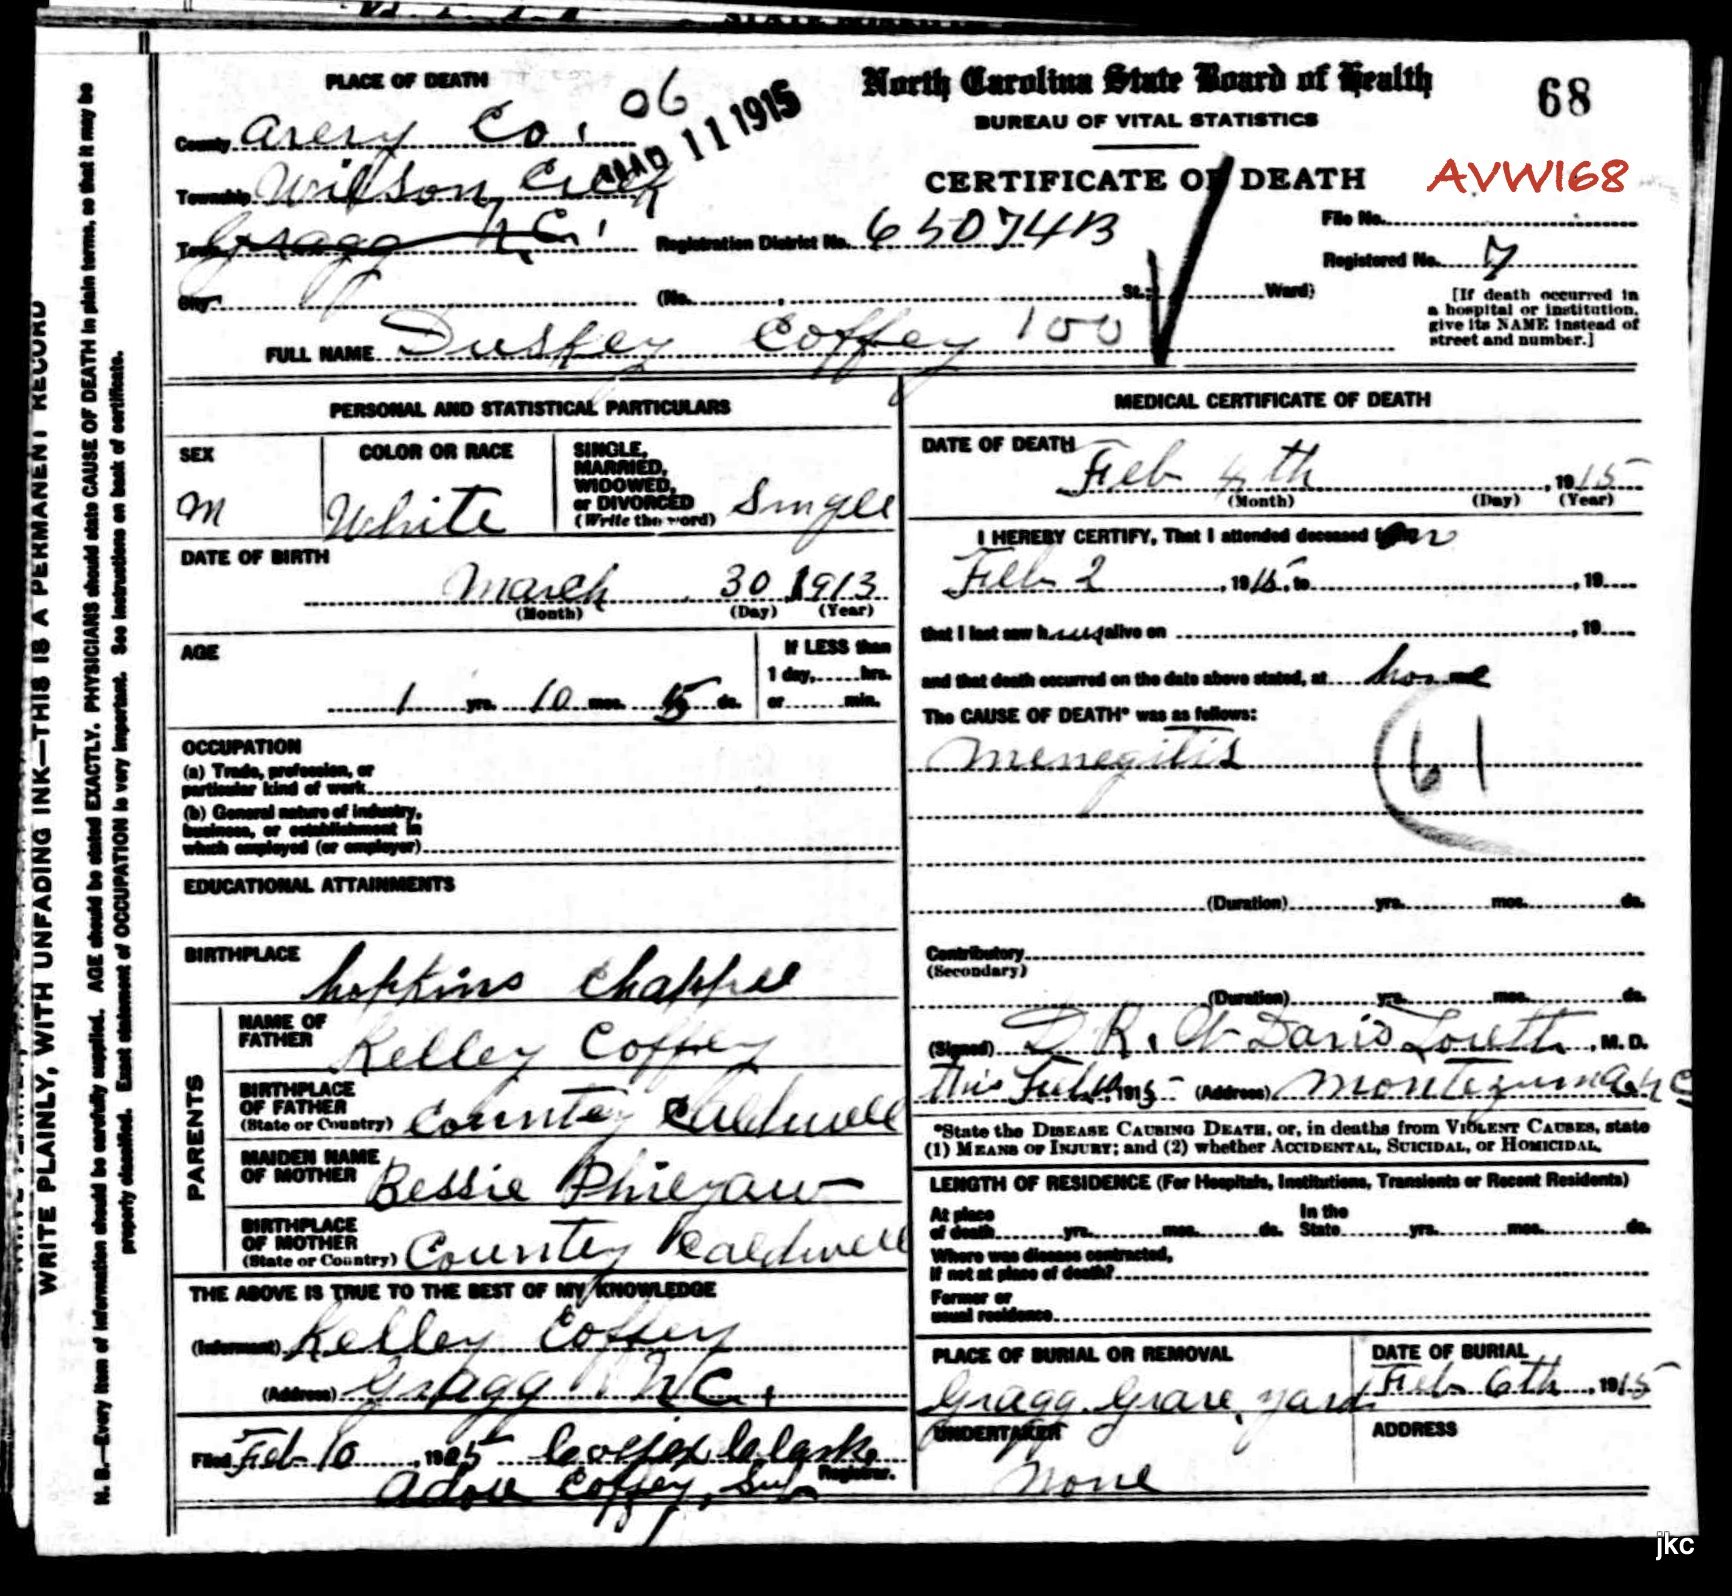 PLACE OF DEATH
County Avery Co. 06
MAR 11 1915
Township Wilson Creek
Town Gragg N.C.
City
North Carolina State Board of Health
BUREAU OF VITAL STATISTICS
CERTIFICATE OF DEATH
68
AVWI68
Registration District No. 65074B
File No.
Registered No. 7
(No. , St.; Ward)
[If death occurred in
a hospital or institution,
give its NAME instead of
street and number.]
FULL NAME Duskey Coffey 100
PERSONAL AND STATISTICAL PARTICULARS
SEX
M
COLOR OR RACE
White
SINGLE,
MARRIED,
WIDOWED,
or DIVORCED
(Write the word)
Single
DATE OF BIRTH
March 30 1913
(Month) (Day) (Year)
AGE
1 yrs. 10 mos. ds.
If LESS than
1 day, hrs.
or min.
OCCUPATION
(a) Trade, profession, or
particular kind of work
(b) General nature of industry,
business, or establishment in
which employed (or employer)
EDUCATIONAL ATTAINMENTS
BIRTHPLACE
hopkins Chappel
PARENTS
NAME OF
FATHER
Kelley Coffey
BIRTHPLACE
OF FATHER
(State or Country)
County Caldwell
MAIDEN NAME
OF MOTHER
Bessie
BIRTHPLACE
OF MOTHER
(State or Country)
County Caldwell
THE ABOVE IS TRUE TO THE BEST OF MY KNOWLEDGE
(Informant) Kelley Coffey
(Address) Gragg N.C.
Filed Feb 10, 1915 Clark
Registrar.
Coffey, Sub
MEDICAL CERTIFICATE OF DEATH
DATE OF DEATH
Feb 4th , 1915
(Month) (Day) (Year)
I HEREBY CERTIFY, That I attended deceased
Feb 2 , 1915, to , 19
that I last saw h alive on , 19
and that death occurred on the date above stated, at home
The CAUSE OF DEATH* was as follows:
Menegitis
61
(Duration) yrs. mos. ds.
Contributory
(Secondary)
(Duration) yrs. mos. ds.
(Signed) D R. W Davis , M. D.
This Feb 1915 (Address) Montezuma N C
*State the DISEASE CAUSING DEATH, or, in deaths from VIOLENT CAUSES, state
(1) MEANS OF INJURY; and (2) whether ACCIDENTAL, SUICIDAL, or HOMICIDAL.
LENGTH OF RESIDENCE (For Hospitals, Institutions, Transients or Recent Residents)
At place
of death yrs. mos. ds.
In the
State yrs. mos. ds.
Where was disease contracted,
if not at place of death?
Former or
usual residence
PLACE OF BURIAL OR REMOVAL
Gragg Grave yard
DATE OF BURIAL
Feb 6th , 1915
UNDERTAKER
None
ADDRESS
WRITE PLAINLY, WITH UNFADING INK—THIS IS A PERMANENT RECORD
N. B.—Every item of information should be carefully supplied. AGE should be stated EXACTLY. PHYSICIANS should state CAUSE OF DEATH in plain terms, so that it may be
properly classified. Exact statement of OCCUPATION is very important. See instructions on back of certificate.
jkc